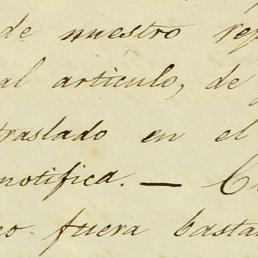 de nuestro rep
al articulo, de
traslado en el
notifica. — C
fuera basta